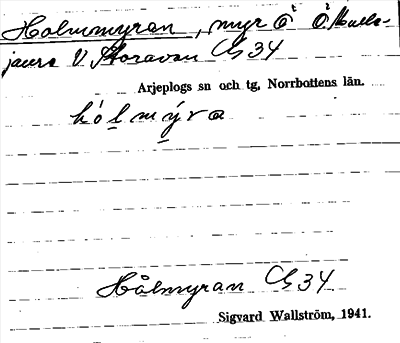 Holmmyran, myr Ö Ö
V. Storavan Cg 34
Arjeplogs sn och tg, Norrbottens län.
hólmýra
Hålmyran Cg 34
Sigvard Wallström, 1941.